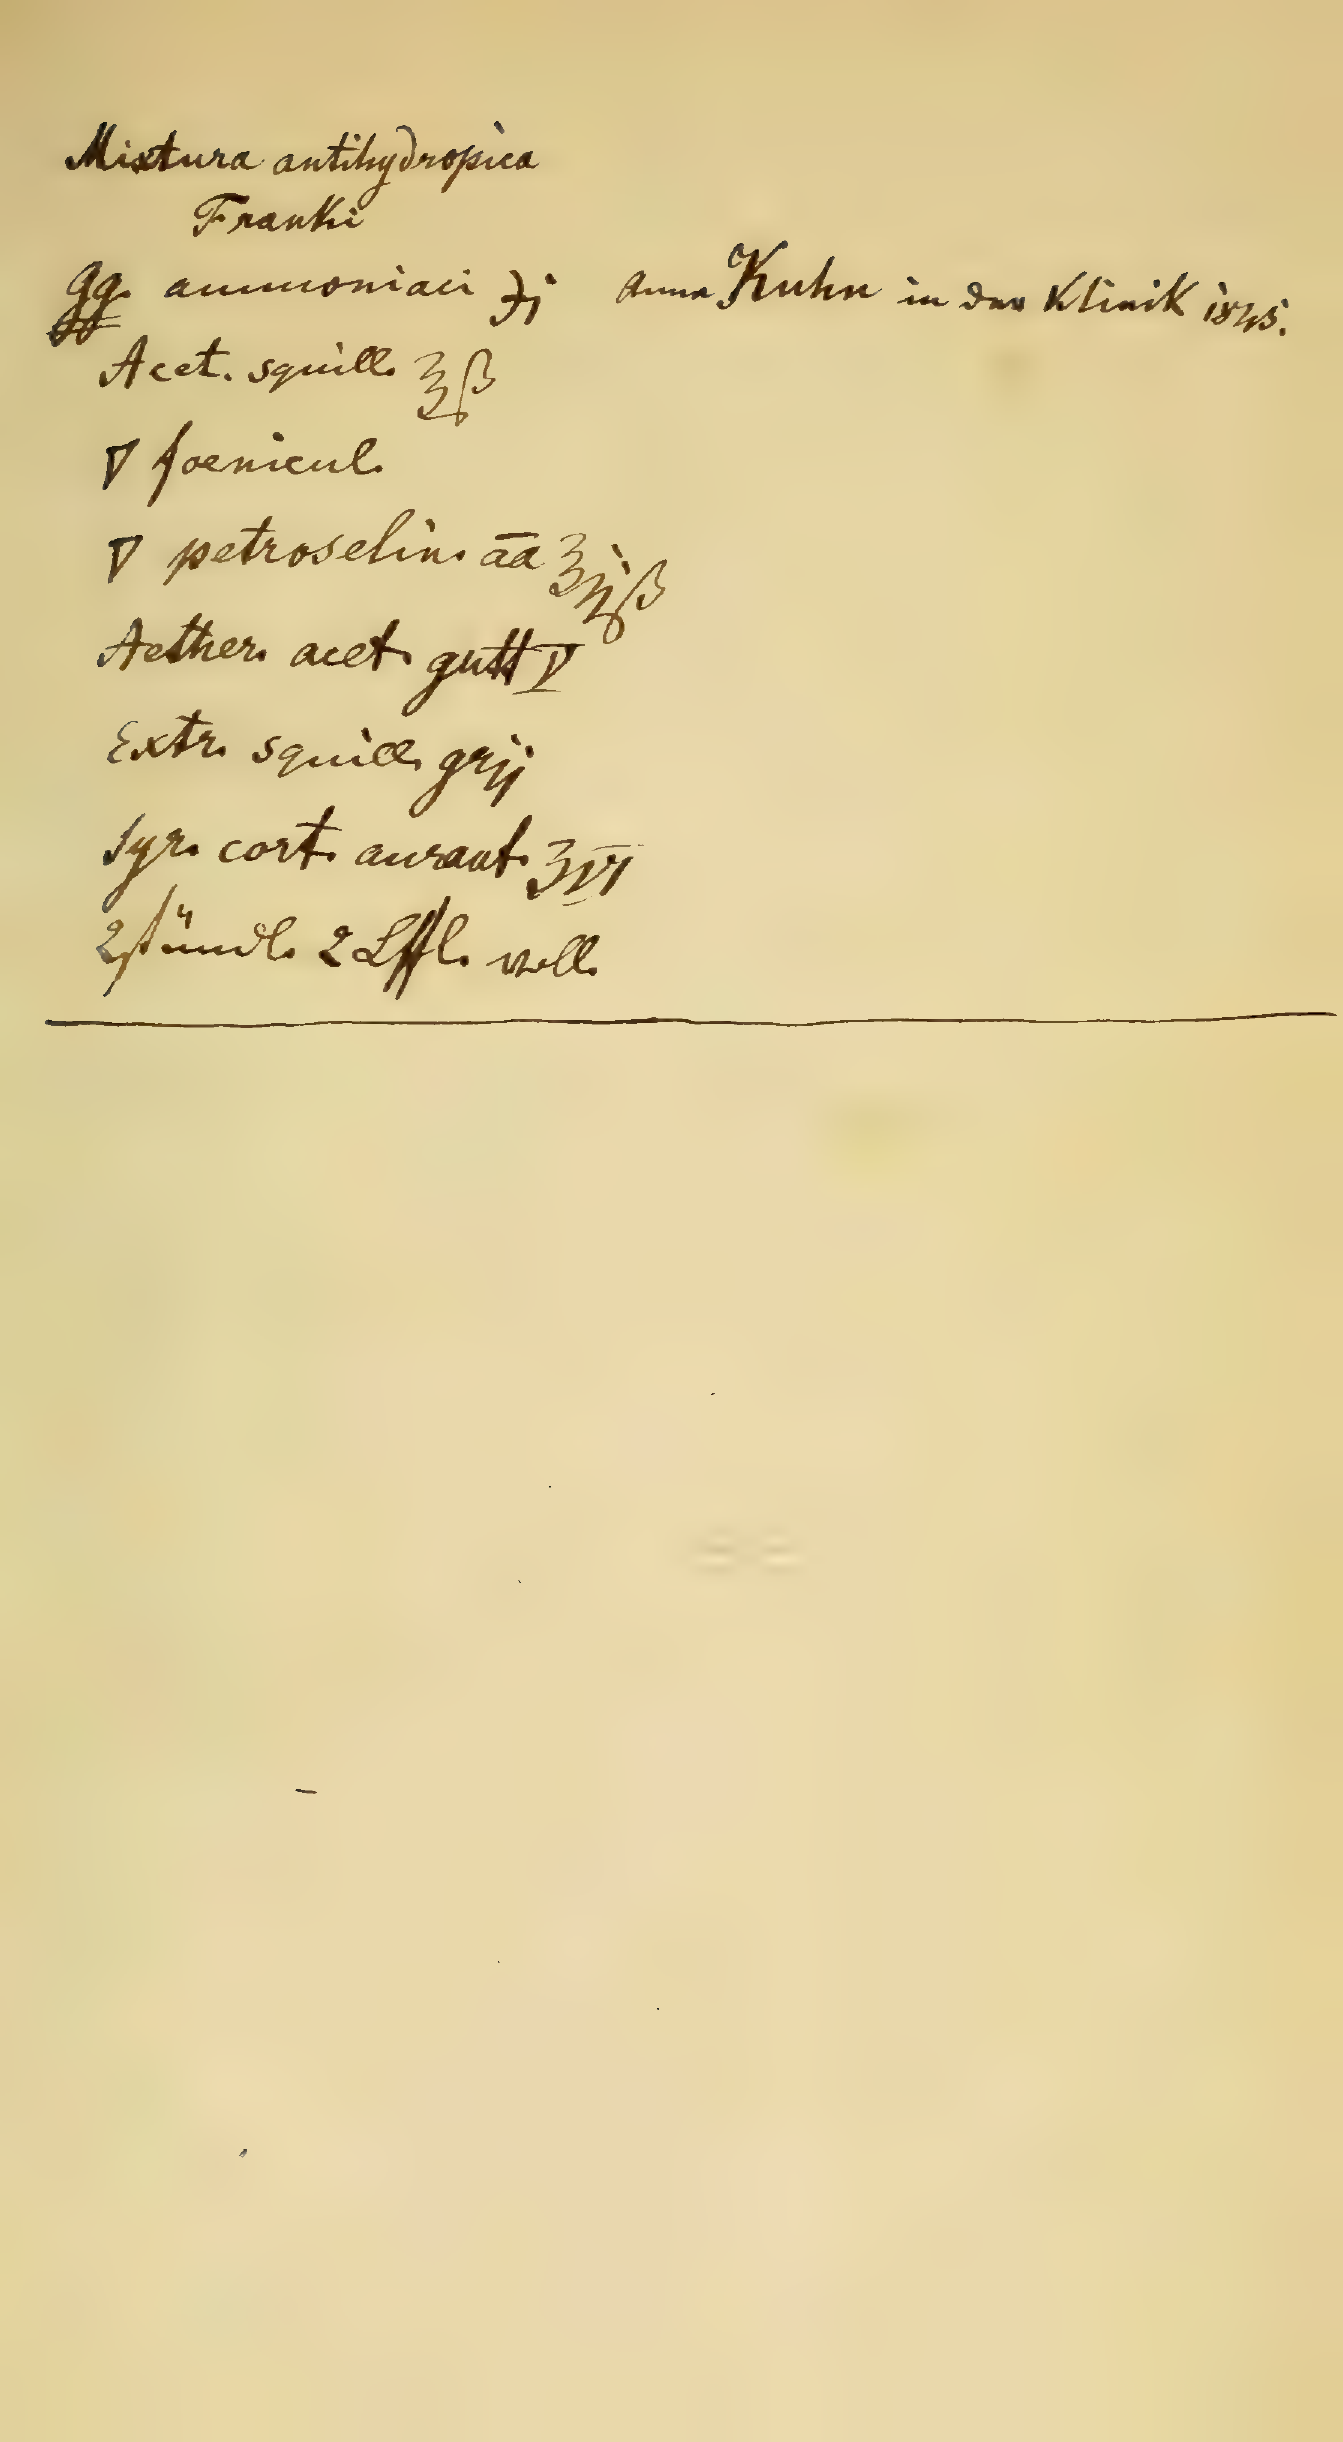 Mixtura antihydropica
Franki
Gg. ammoniaci ʒj Anna Kuhn in der Klinik 1845.
Acet. squill. ℥ß
🜄 foenicul.
🜄 petroselin. āā ℥ijß
Aether. acet. gutt V
Extr. squill. grij
Syr. cort. aurant. ʒVI
2stündl. 2 Lffl. voll.